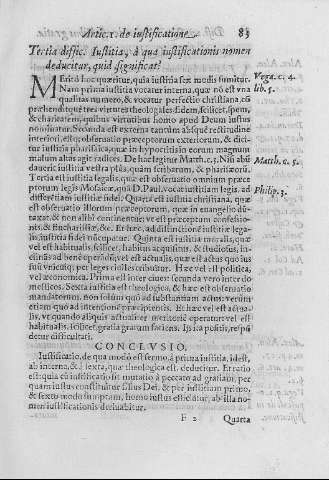 Artic. 1. de iustificatione 83
Tertia diffic. Iustitia, à qua iustificationis nomen
deducitur, quid significat?
MEritò hac quæritur, quia iustitia sex modis sumitur.
Nam prima iustitia vocatur interna, quæ nō est vna
qualitas numero, & vocatur perfectio christiana, cō
præhendítque tres virtutes theologales: fidem, scilicet, spem,
& charitatem, quibus virtutibus homo apud Deum iustus
nominatur. Secunda est externa tantùm absque rectitudine
interiori, observatio præceptorum exteriorum, & dici-
tur iustitia pharisaica, quæ in hypocritis eorum magnum
malum altas agit radices. De hac legitur Matth. c. 5. Nisi abū
daverit iustitia vestra plus, quàm scribarum, & pharisæorū.
Tertia est iustitia legalis, quæ est observatio omnium præce
ptorum legis Mosaicæ, quā D. Paul. vocat iustitiam legis, ad
differētiam iustitiæ fidei. Quarta est iustitia christiana, quæ
est observatio illorum præceptorum, quæ in evangelio dū-
taxat, & non alibi continentur, vt præceptum confessio-
nis, & Eucharistiæ, &c. Et hæc, ad distinctionē iustitiæ lega-
lis, iustitia fidei nūcupatur. Quinta est iustitia moralis, quæ
vel est habitualis, scilicet, habitus acquisitus, & studiosus, in
clināns ad benè operādū, vel est actualis, quæ est actus quo ius
suū vnicuiq; per leges civiles tribuitur. Hæc vel est politica,
vel œconomica. Prima est inter cives: secunda verò inter do
mesticos. Sexta iustitia est theologica, & hæc est observatio
mandatorum, non solùm quò ad substantiam actus: verùm
etiam quò ad intentionē præcipientis. Et hæc vel est actua-
lis, vt quando aliquis actualiter meritoriè operatur: vel est
habitualis, scilicet, gratia gratum faciens. His ita positis, respō
detur difficultati.
CONCLVSIO.
Iustificatio, de qua modò est sermo, à prima iustitia, id est,
ab interna, & à sexta, quæ theologica est, deducitur. Et ratio
est: quia cū iustificatio sit mutatio à peccato ad gratiam, per
quam iustus constituitur filius Dei, & per iustitiam primo,
& sexto modo sumptam, homo iustus efficitur, ab illa no-
men iustificationis derivabitur.
F 2 Quarta
Vega. c. 4.
lib. 5.
Matth. c. 5.
Philip. 3.